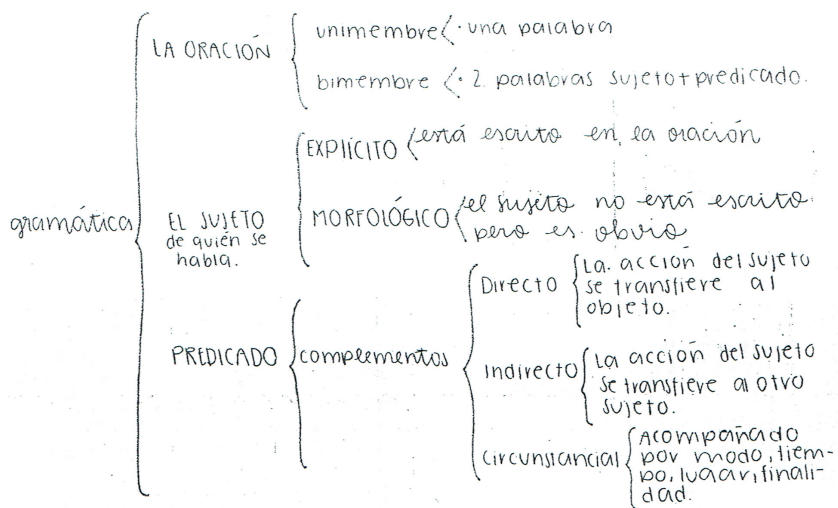 gramática
LA ORACIÓN
unimembre · una palabra
bimembre · 2 palabras sujeto + predicado.
EL SUJETO
de quién se
habla.
EXPLÍCITO está escrito en la oración
MORFOLÓGICO el sujeto no está escrito
pero es obvio
PREDICADO
complementos
Directo
La acción del sujeto
se transfiere al
objeto.
Indirecto
La acción del sujeto
se transfiere a otro
sujeto.
Circunstancial
Acompañado
por modo, tiem-
po, lugar, finali-
dad.